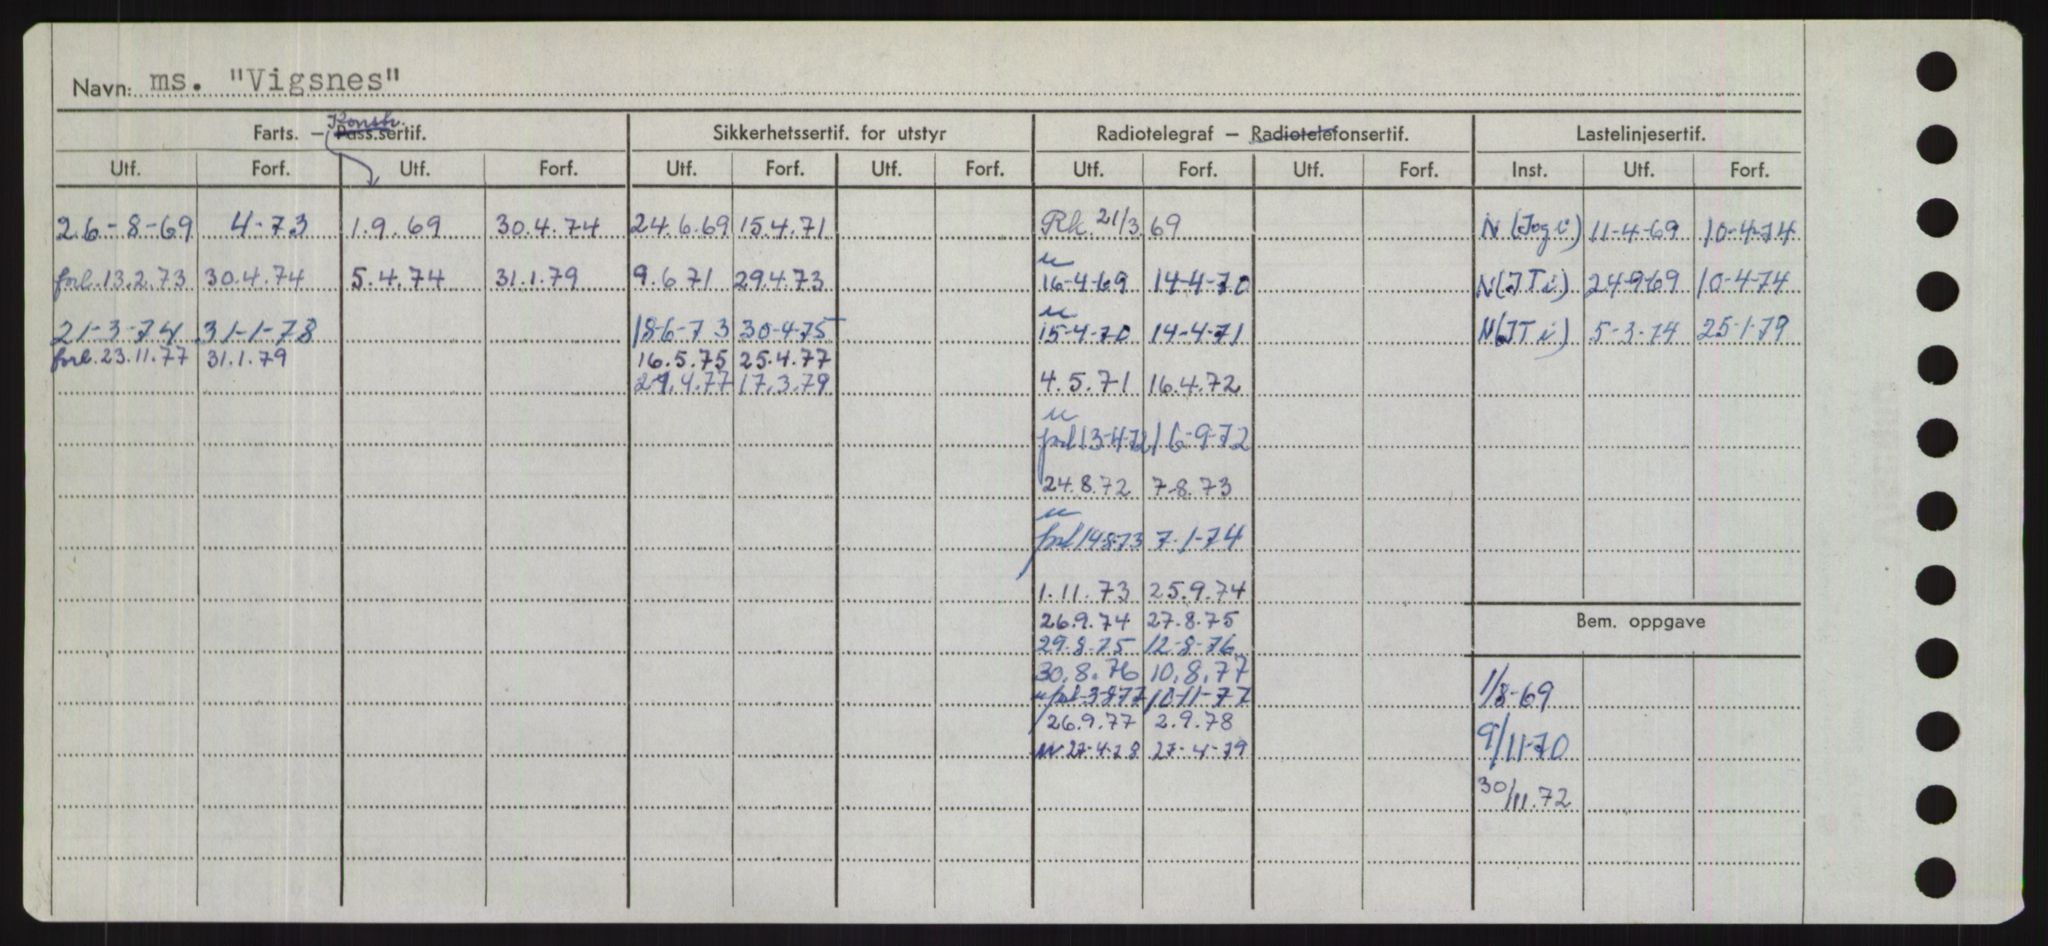 Navn: ms. "Vigsnes"
Konstr.
Farts. – Pass.sertif. Sikkerhetssertif. for utstyr Radiotelegraf – Radiotelefonsertif. Lastelinjesertif.
Utf. Forf. Utf. Forf. Utf. Forf. Utf. Forf. Utf. Forf. Utf. Forf. Inst. Utf. Forf.
26-8-69 4-73 1.9.69 30.4.74 24.6.69 15.4.71 Rk. 21/3.69 N (Jog i) 11-4-69 10-4-74
u
forl.13.2.73 30.4.74 5.4.74 31.1.79 9.6.71 29.4.73 16-4-69 14-4-70 N(JT i) 24-9-69 10-4-74
u
21-3-74 31-1-78 18-6-73 30-4-75 15-4-70 14-4-71 N(JT i) 5-3-74 25-1-79
forl.23.11.77 31.1.79 16.5.75 25.4.77
29.4.77 17.3.79 4.5.71 16.4.72
u
forl 13-4-72 16-9-72
24.8.72 7-8.73
u
forl 14-8-73 7-1-74
1.11.73 25.9.74
26.9.74 27.8.75 Bem. oppgave
29.8.75 12-8-76
30.8.76 10.8.77
u forl. 3-8-77 10-11-77 1/8-69
26.9.77 2.9.78
u 27-4-78 27-4-79 9/11-70
30/11.72